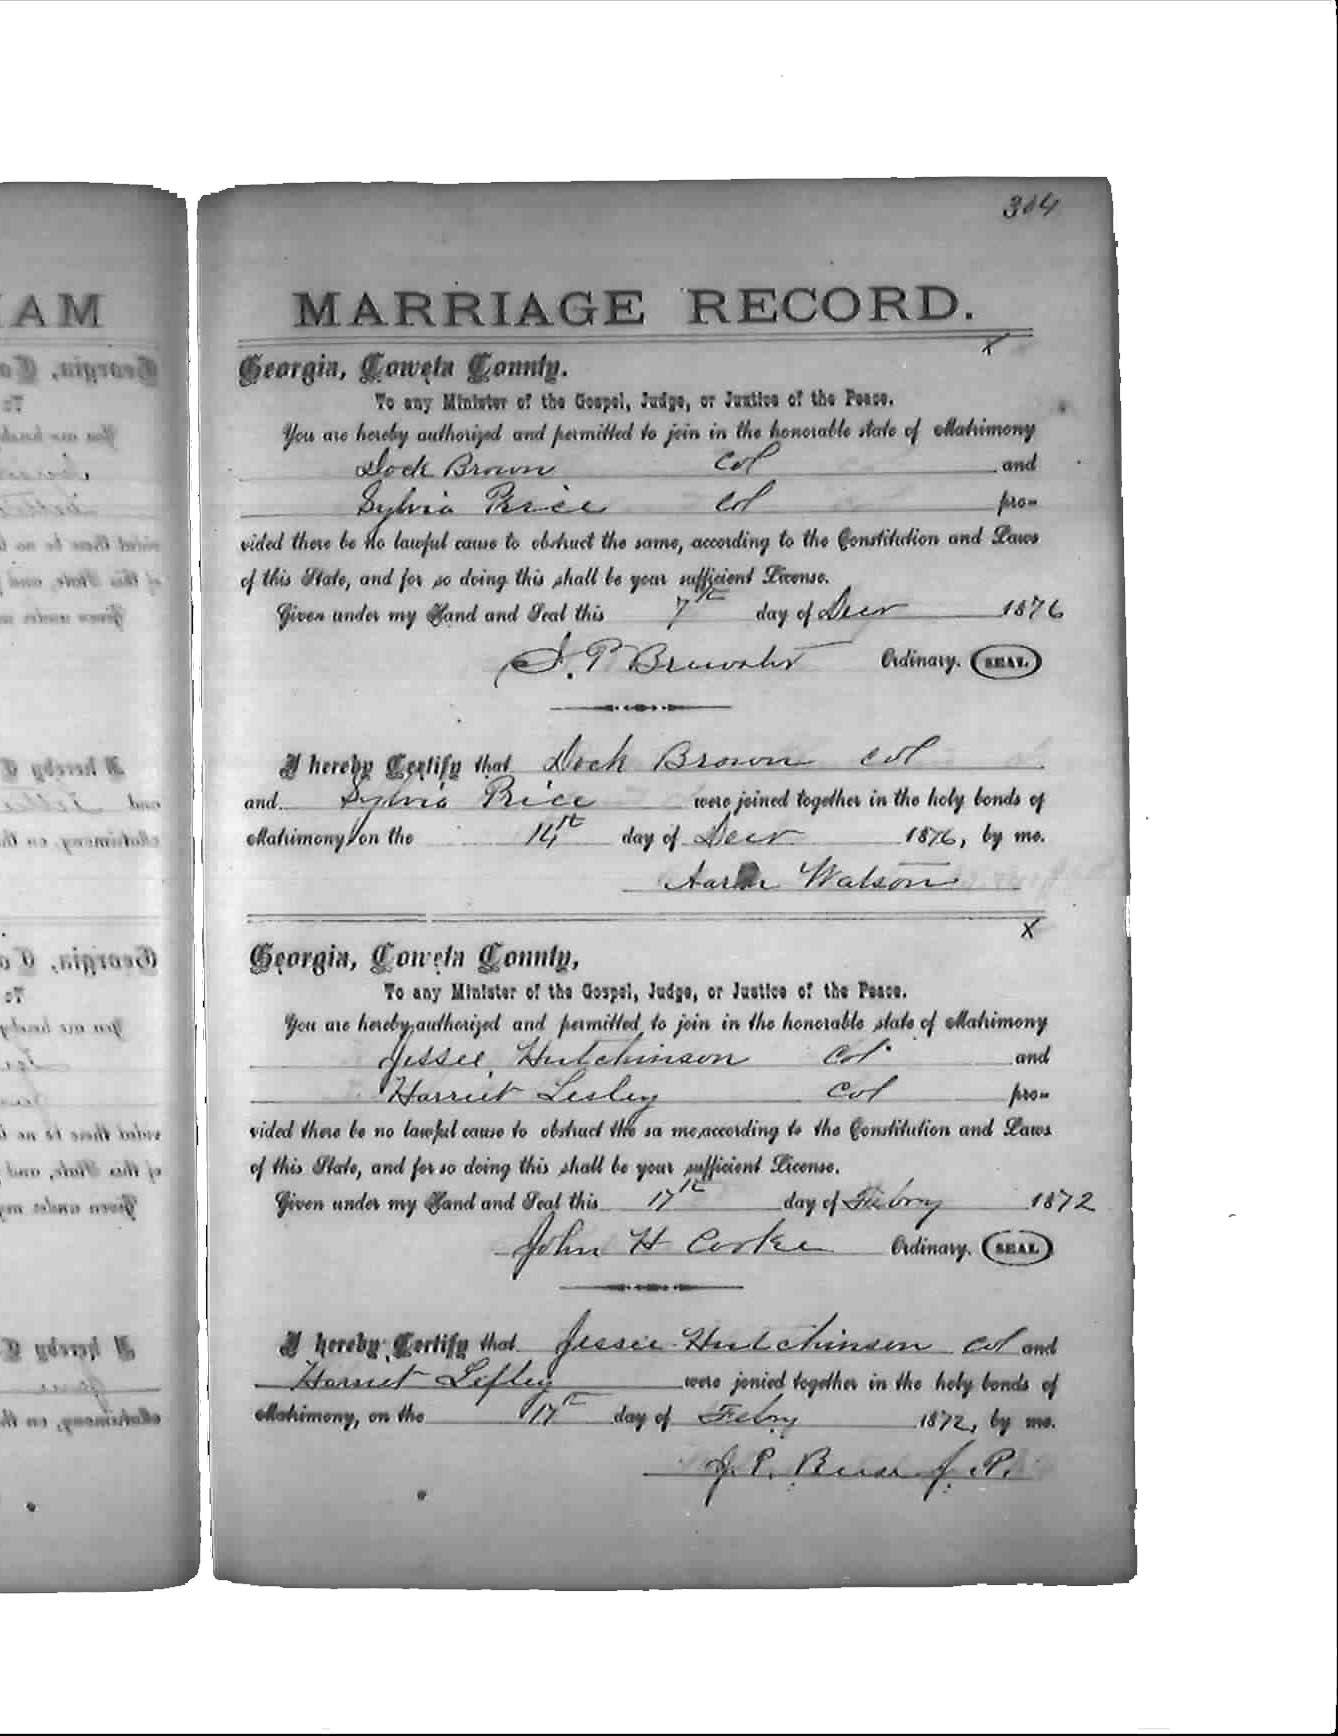 304
MARRIAGE RECORD.
x
Georgia, Coweta County.
To any Minister of the Gospel, Judge, or Justice of the Peace.
You are hereby authorized and permitted to join in the honorable state of Matrimony
Dock Brown col and
Sylvia Price col pro-
vided there be no lawful cause to obstruct the same, according to the Constitution and Laws
of this State, and for so doing this shall be your sufficient License.
Given under my Hand and Seal this 7th day of Decr 1876
J. P. Brewster Ordinary. SEAL
I hereby Certify that Dock Brown col
and Sylvia Price were joined together in the holy bonds of
Matrimony on the 14th day of Decr 1876, by me.
Aaron Watson
x
Georgia, Coweta County,
To any Minister of the Gospel, Judge, or Justice of the Peace.
You are hereby authorized and permitted to join in the honorable state of Matrimony
Jessee Hutchinson Col and
Harriet Lesley Col pro-
vided there be no lawful cause to obstruct the sa me, according to the Constitution and Laws
of this State, and for so doing this shall be your sufficient License.
Given under my Hand and Seal this 17th day of Febry 1872
John H Cooke Ordinary. SEAL
I hereby Certify that Jessee Hutchinson Col and
Harriet Lesley were jonied together in the holy bonds of
Matrimony, on the 17th day of Febry 1872, by me.
J. P. J. P.